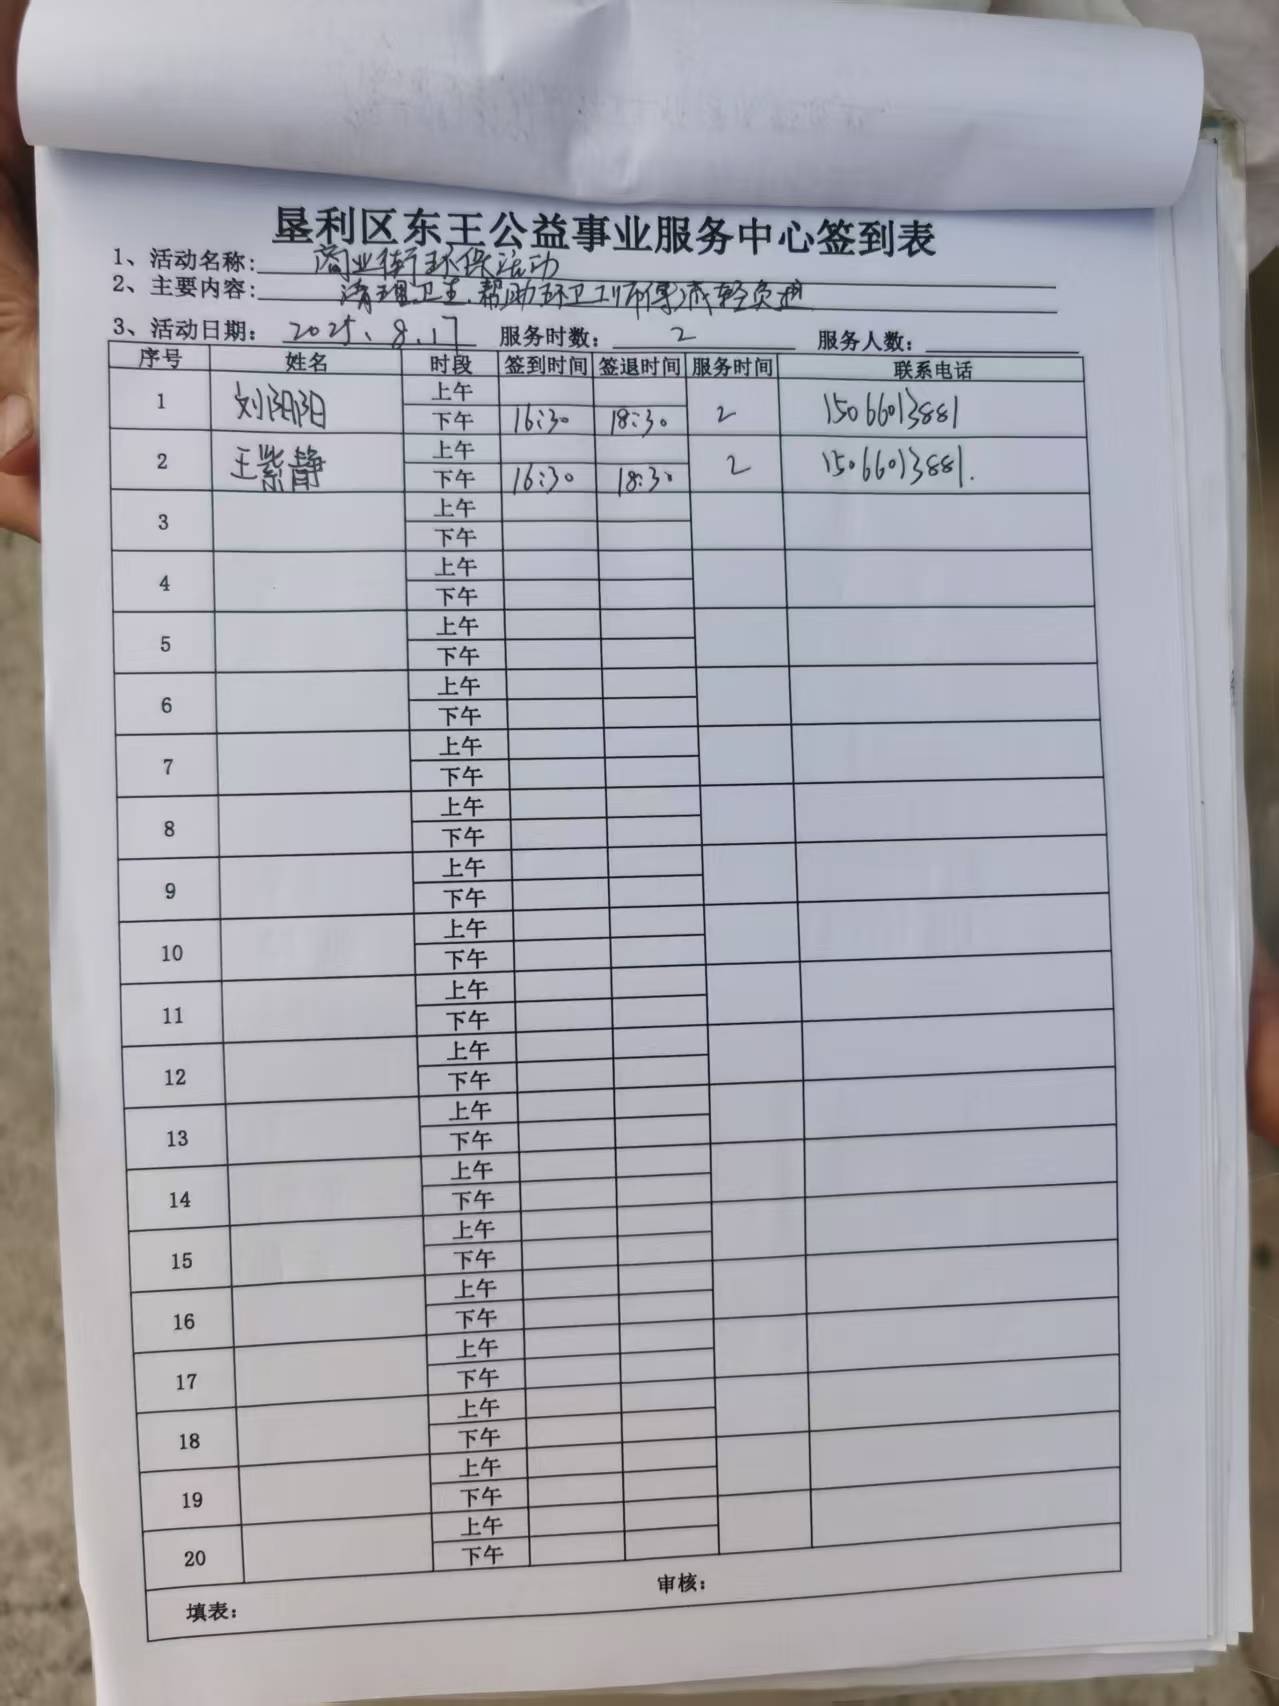 垦利区东王公益事业服务中心签到表
1、活动名称: 商业街环保活动
2、主要内容: 清理卫生.帮助环卫工师傅减轻负担
3、活动日期: 2025、8.17 服务时数: 2 服务人数:
序号 姓名 时段 签到时间 签退时间 服务时间 联系电话
1 刘阳阳 上午
下午 16:30 18:30 2 15066013881
2 王紫静 上午
下午 16:30 18:30 2 15066013881.
3 上午
下午
4 上午
下午
5 上午
下午
6 上午
下午
7 上午
下午
8 上午
下午
9 上午
下午
10 上午
下午
11 上午
下午
12 上午
下午
13 上午
下午
14 上午
下午
15 上午
下午
16 上午
下午
17 上午
下午
18 上午
下午
19 上午
下午
20 上午
下午
填表: 审核: